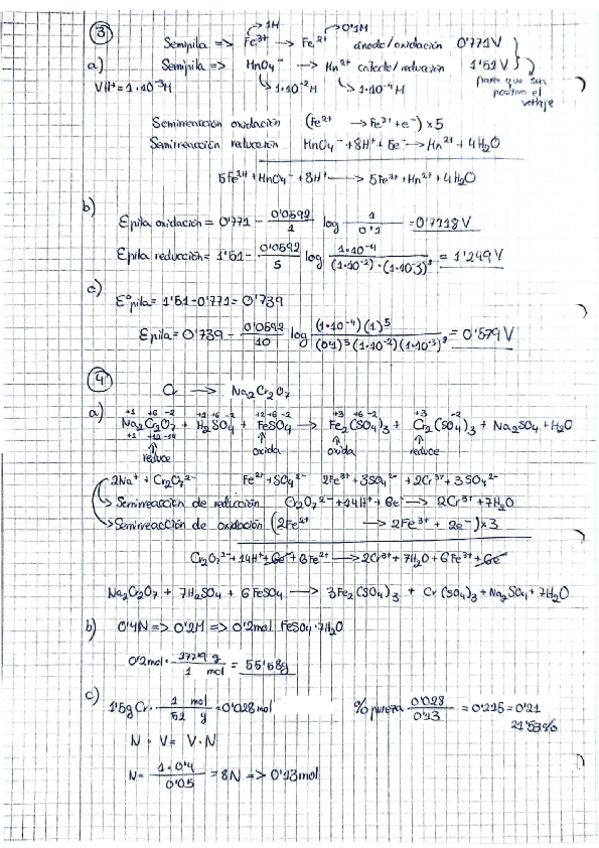 ③ →1M →0'1M
Semipila => Fe³⁺ → Fe²⁺ ánodo/oxidación 0'771V
a) Semipila => MnO₄⁻ → Mn²⁺ cátodo/reducción 1'51V
[H⁺]=1·10⁻³M ↳1·10⁻²M ↳1·10⁻⁴M para que sea positivo el voltaje
Semirreacción oxidación (Fe²⁺ → Fe³⁺+e⁻)×5
Semirreacción reducción MnO₄⁻+8H⁺+5e⁻→Mn²⁺+4H₂O
5Fe²⁺+MnO₄⁻+8H⁺→5Fe³⁺+Mn²⁺+4H₂O
b)
E pila oxidación = 0'771 - 0'0592/1 log 1/0'1 = 0'7118V
E pila reducción = 1'51 - 0'0592/5 log 1·10⁻⁴/(1·10⁻²)·(1·10⁻³)⁸ = 1'249V
c) E°pila = 1'51-0'771 = 0'739
E pila = 0'739 - 0'0592/10 log (1·10⁻⁴)(1)⁵/(0'1)⁵(1·10⁻²)(1·10⁻³)⁸ = 0'579V
④
Cr → Na₂Cr₂O₇
+1 +6 -2 +1 +6 -2 +2 +6 -2 +3 +6 -2 +3 -2
a) Na₂Cr₂O₇ + H₂SO₄ + FeSO₄ → Fe₂(SO₄)₃ + Cr₂(SO₄)₃ + Na₂SO₄ + H₂O
+2 +12 -14
reduce oxida oxida reduce
2Na⁺ + Cr₂O₇²⁻ Fe²⁺+SO₄²⁻ 2Fe³⁺+3SO₄²⁻ +2Cr³⁺+3SO₄²⁻
Semirreacción de reducción Cr₂O₇²⁻+14H⁺+6e⁻→2Cr³⁺+7H₂O
Semirreacción de oxidación (2Fe²⁺ → 2Fe³⁺ + 2e⁻)×3
Cr₂O₇²⁻+14H⁺+6e⁻+6Fe²⁺→2Cr³⁺+7H₂O+6Fe³⁺+6e⁻
Na₂Cr₂O₇ + 7H₂SO₄ + 6FeSO₄ → 3Fe₂(SO₄)₃ + Cr(SO₄)₃ + Na₂SO₄ + 7H₂O
b) 0'4N => 0'2M => 0'2mol FeSO₄·7H₂O
0'2mol · 277'9 g/1 mol = 55'58g
c) 1'5g Cr · 1 mol/52 g = 0'028mol % pureza 0'028/0'13 = 0'215 = 0'21
21'53%
N · V = V · N
N = 1·0'4/0'05 = 8N => 0'13mol